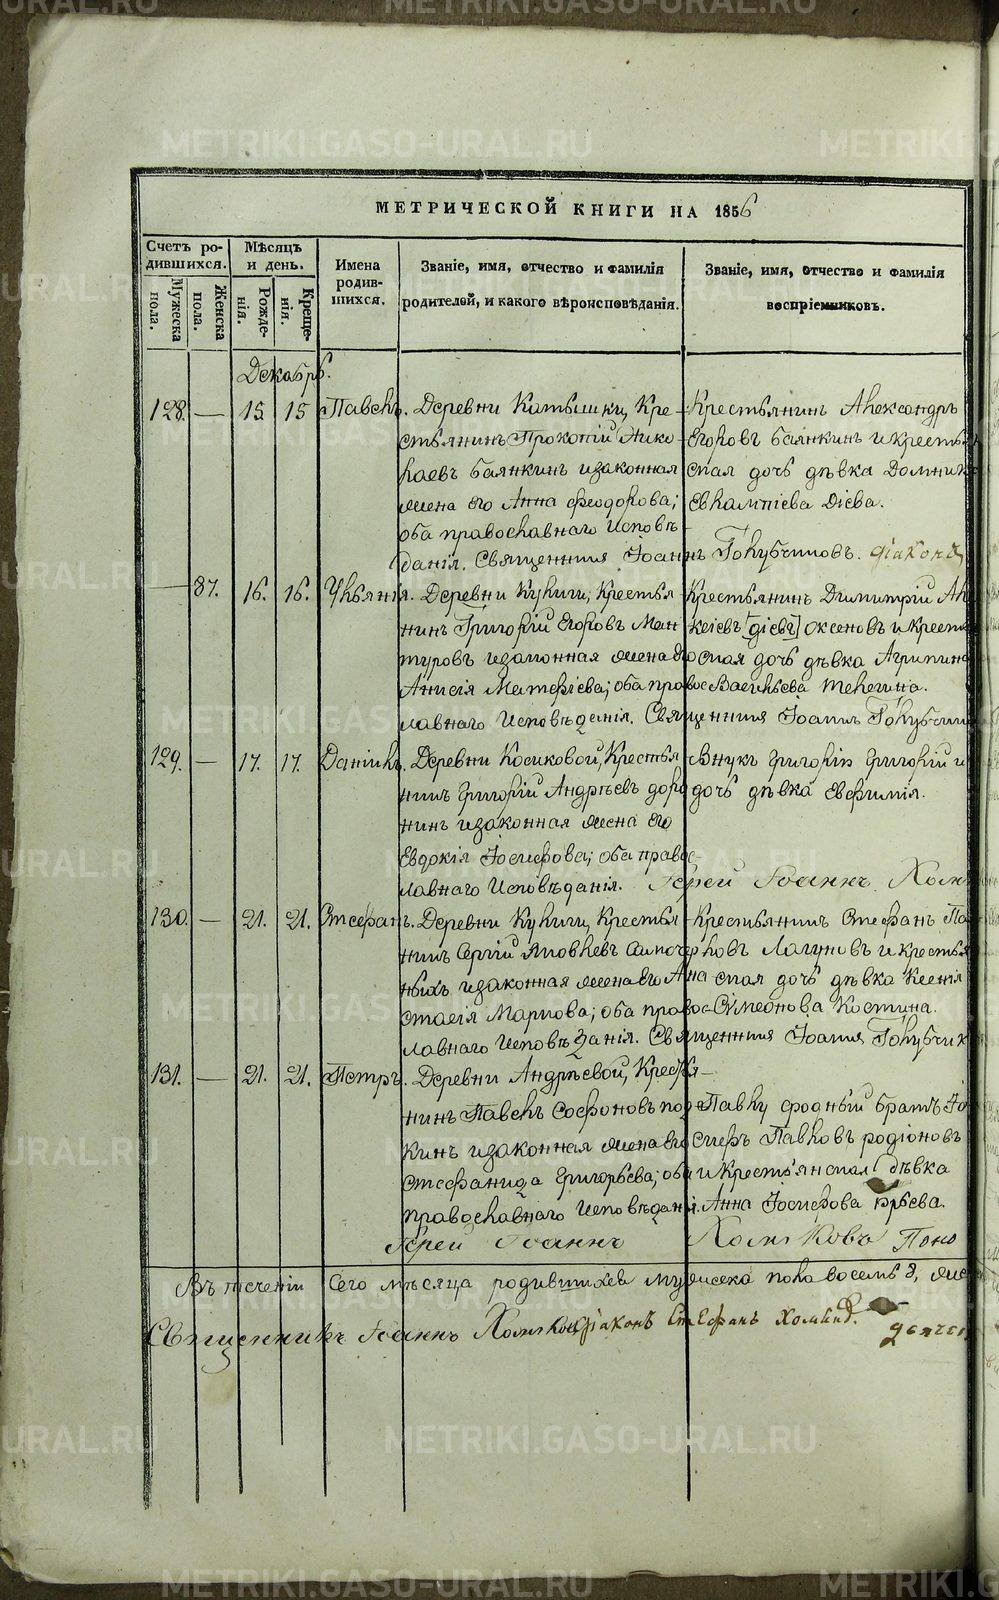 МЕТРИЧЕСКОЙ КНИГИ НА 1856
Счетъ ро-
дившихся.
Мѣсяцъ
и день.
Имена
родив-
шихся.
Званіе, имя, отчество и фамилія
родителей, и какого вѣроисповѣданія.
Званіе, имя, отчество и фамилія
воспріемниковъ.
Мужеска
пола.
Женска
пола.
Рожде-
нія.
Креще-
нія.
Декабрь.
128. — 15 15 Павелъ.
Деревни Катышки, Кре-
стьянинъ Прокопій Нико-
лаевъ Баянкинъ и законная
жена его Анна Феодорова;
оба православнаго Исповѣ-
данія. Священникъ Іоаннъ Голубчиковъ. діаконъ
Крестьянинъ Александръ
Егоровъ Баянкинъ и кресть
ская дочь дѣвка Домник
Евлампіева Дієва.
— 87. 16. 16. Ульянія.
Деревни Кулиги, Крестья
нинъ Григорій Егоровъ Ман
туровъ и законная жена его
Анисія Матфіева; оба право
славнаго Исповѣданія. Священникъ Іоаннъ Голубчик
Крестьянинъ Димитрій Ал
ксіевъ [діевъ] Оксеновъ и крест
ская дочь дѣвка Агрипина
Васильева Телегина.
129. — 17. 17. Даніилъ.
Деревни Косиковой, Крестья
нинъ Григорій Андрѣевъ доро
нинъ и законная жена его
Евдокія Іосифова; оба правос-
лавнаго Исповѣданія. Іерей Іоаннъ Холм
Внукъ Григорія Григорій и
дочь дѣвка Евфимія.
130. — 21. 21. Стефанъ.
Деревни Кулиги, Крестья
нинъ Сергій Яковлевъ Самоч
ныхъ и законная жена его Ана
стасія Маркова; оба правос-
лавнаго Исповѣданія. Священникъ Іоаннъ Голубчик
Крестьянинъ Стефанъ Па
ловъ Лагуновъ и крестья
ская дочь дѣвка Ксенія
Симеонова Костина.
131. — 21. 21. Петръ.
Деревни Андрѣевой, Крестья-
нинъ Павелъ Софоновъ
кинъ и законная жена его
Стефанида Григорьева; оба
православнаго Исповѣданія.
Павлу родный братъ Іо
сифъ Павловъ родіоновъ
и Крестьянская дѣвка
Анна Іосифова
Іерей Іоаннъ Холмковъ Поно
Въ теченіи сего мѣсяца родившихся мужеска пола восемь 8, же
Священникъ Іоаннъ Холмковъ діаконъ Стефанъ